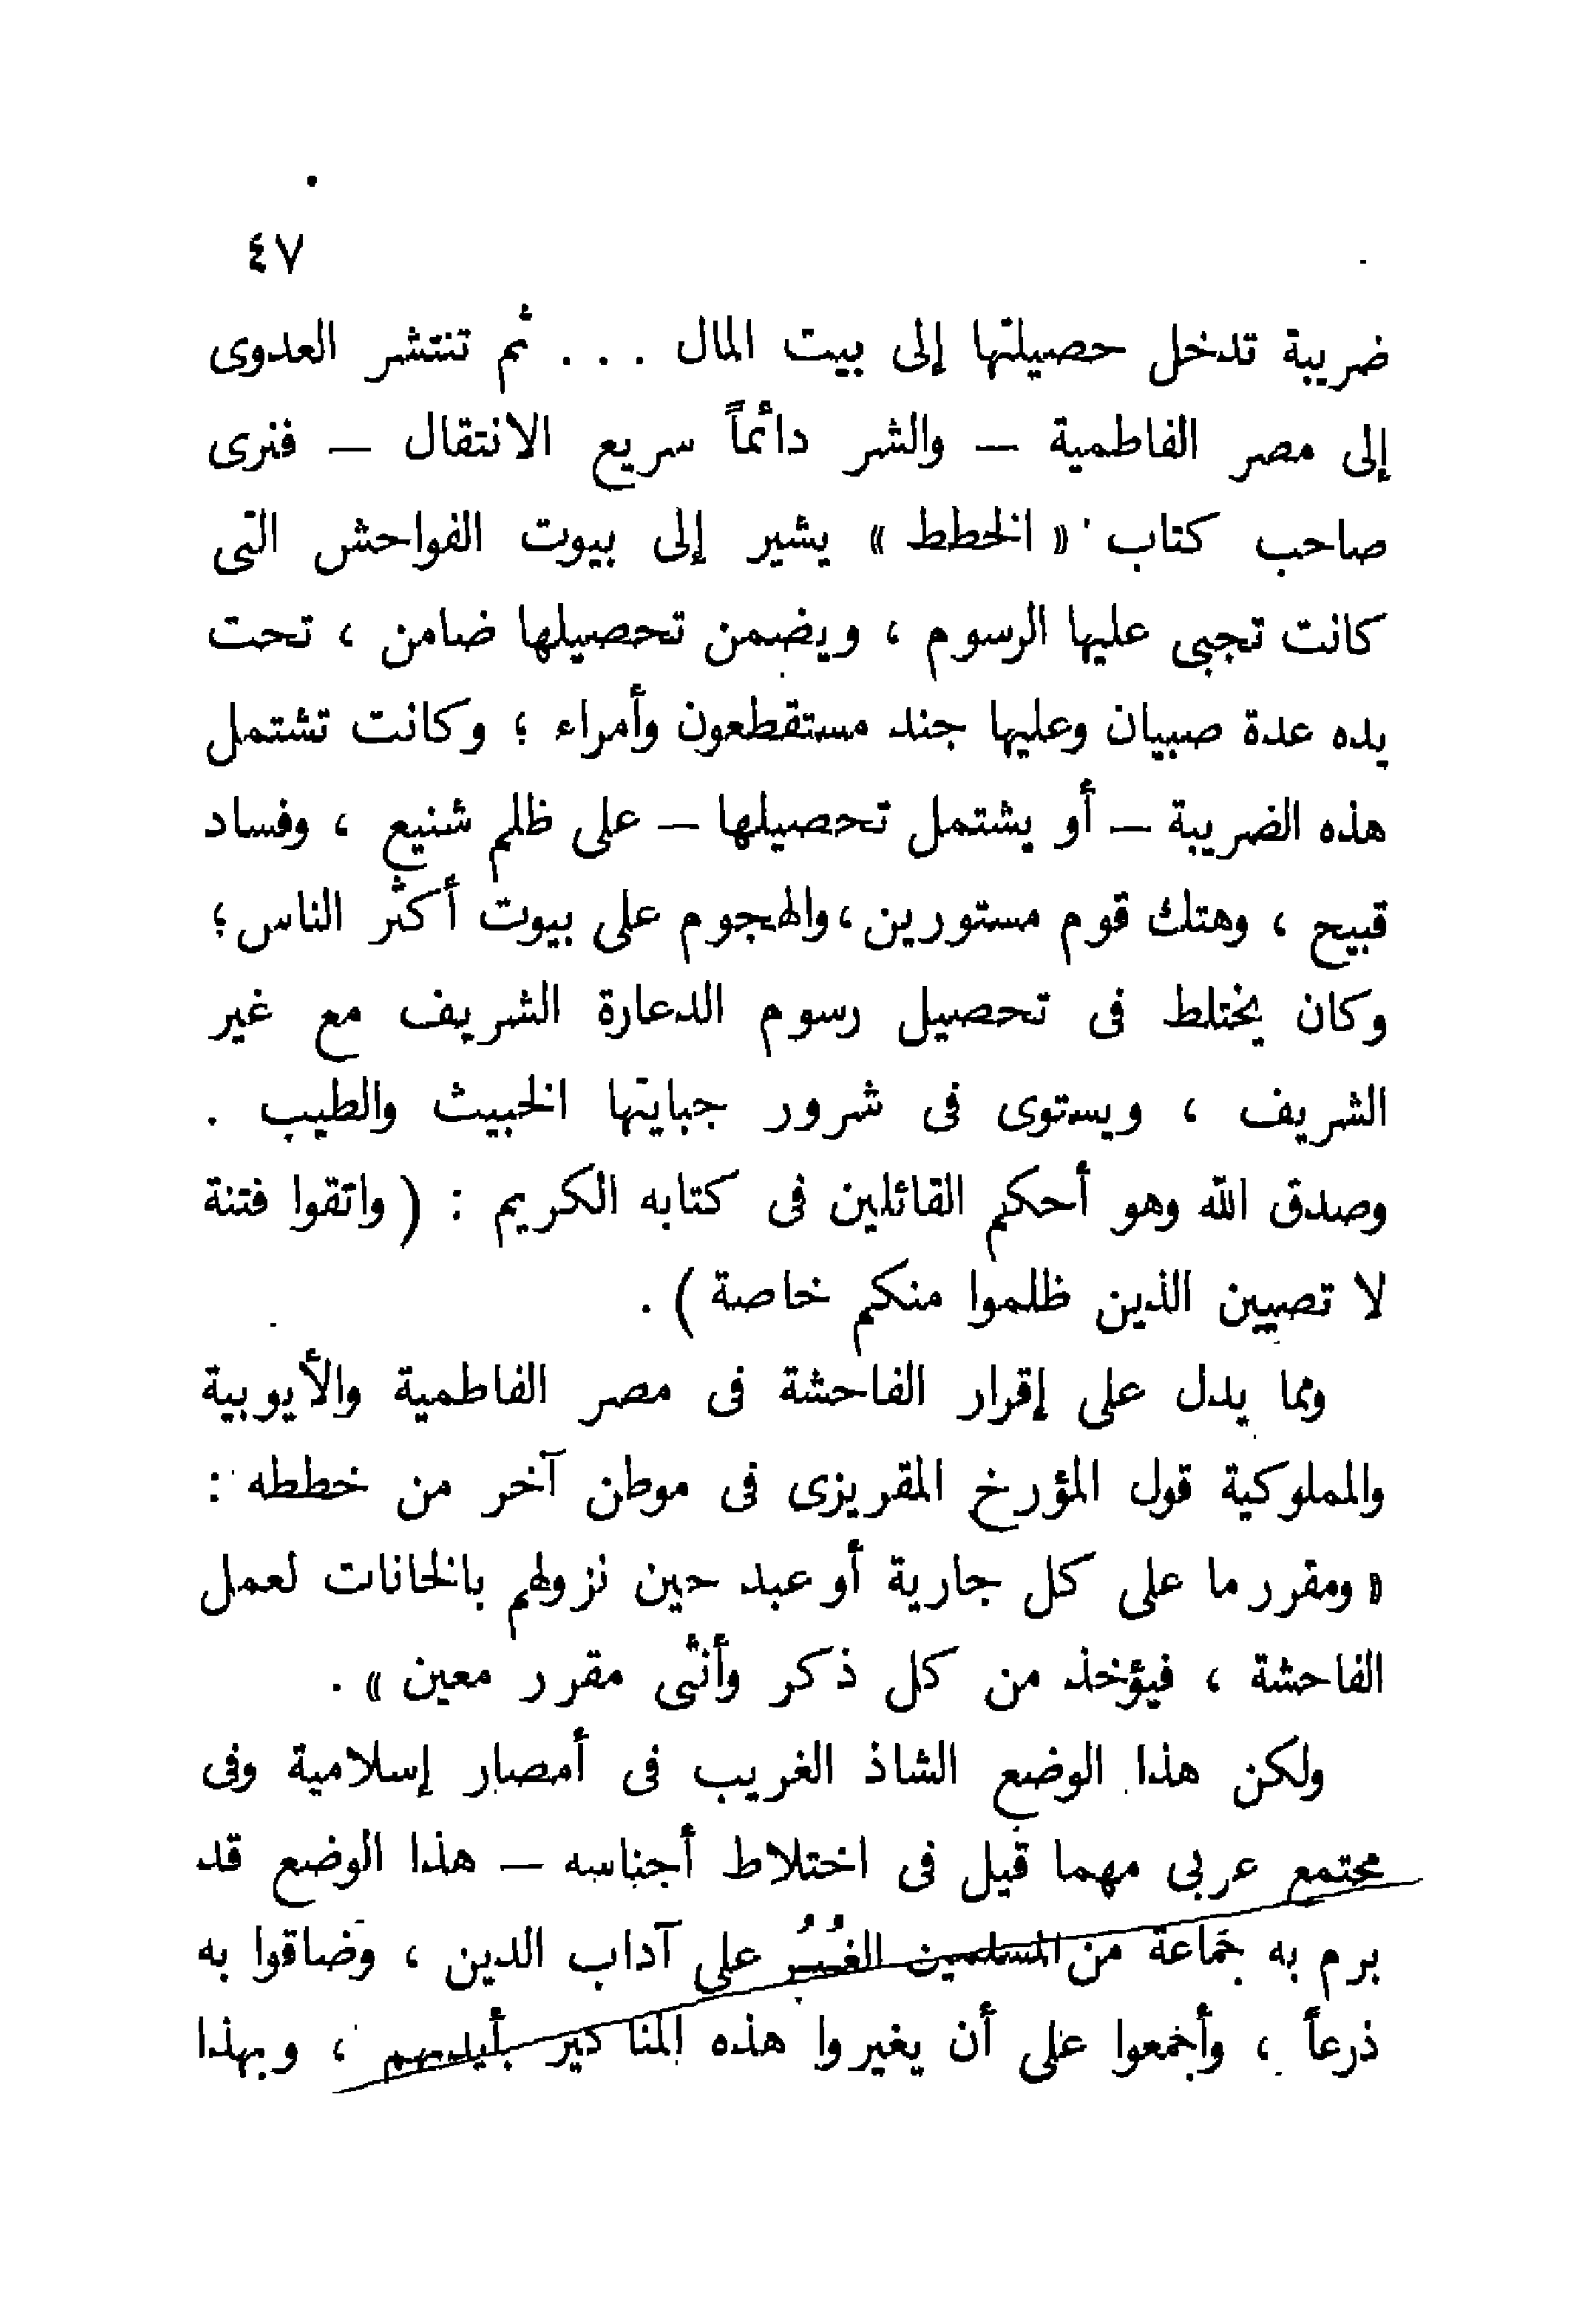 ٤٧
ضريبة تدخل حصيلتها إلى بيت المال . . . ثم تنتشر العدوى
إلى مصر الفاطمية – والشر دائماً سريع الانتقال – فنرى
صاحب كتاب « الخطط » يشير إلى بيوت الفواحش التى
كانت تجبى عليها الرسوم ، ويضمن تحصيلها ضامن ، تحت
يده عدة صبيان وعليها جند مستقطعون وأمراء ؛ وكانت تشتمل
هذه الضريبة – أو يشتمل تحصيلها – على ظلم شنيع ، وفساد
قبيح ، وهتك قوم مستورين ، والهجوم على بيوت أكثر الناس ؛
وكان يختلط فى تحصيل رسوم الدعارة الشريف مع غير
الشريف ، ويستوى فى شرور جبايتها الخبيث والطيب .
وصدق الله وهو أحكم القائلين فى كتابه الكريم : ( واتقوا فتنة
لا تصيبن الذين ظلموا منكم خاصة ) .
ومما يدل على إقرار الفاحشة فى مصر الفاطمية والأيوبية
والمملوكية قول المؤرخ المقريزى فى موطن آخر من خططه :
« ومقرر ما على كل جارية أو عبد حين نزولهم بالخانات لعمل
الفاحشة ، فيؤخذ من كل ذكر وأنثى مقرر معين » .
ولكن هذا الوضع الشاذ الغريب فى أمصار إسلامية وفى
مجتمع عربى مهما قيل فى اختلاط أجناسه – هذا الوضع قد
برم به جماعة من المسلمين الغُيُر على آداب الدين ، وضاقوا به
ذرعاً ، وأجمعوا على أن يغيروا هذه المناكير بأيديهم ، وبهذا